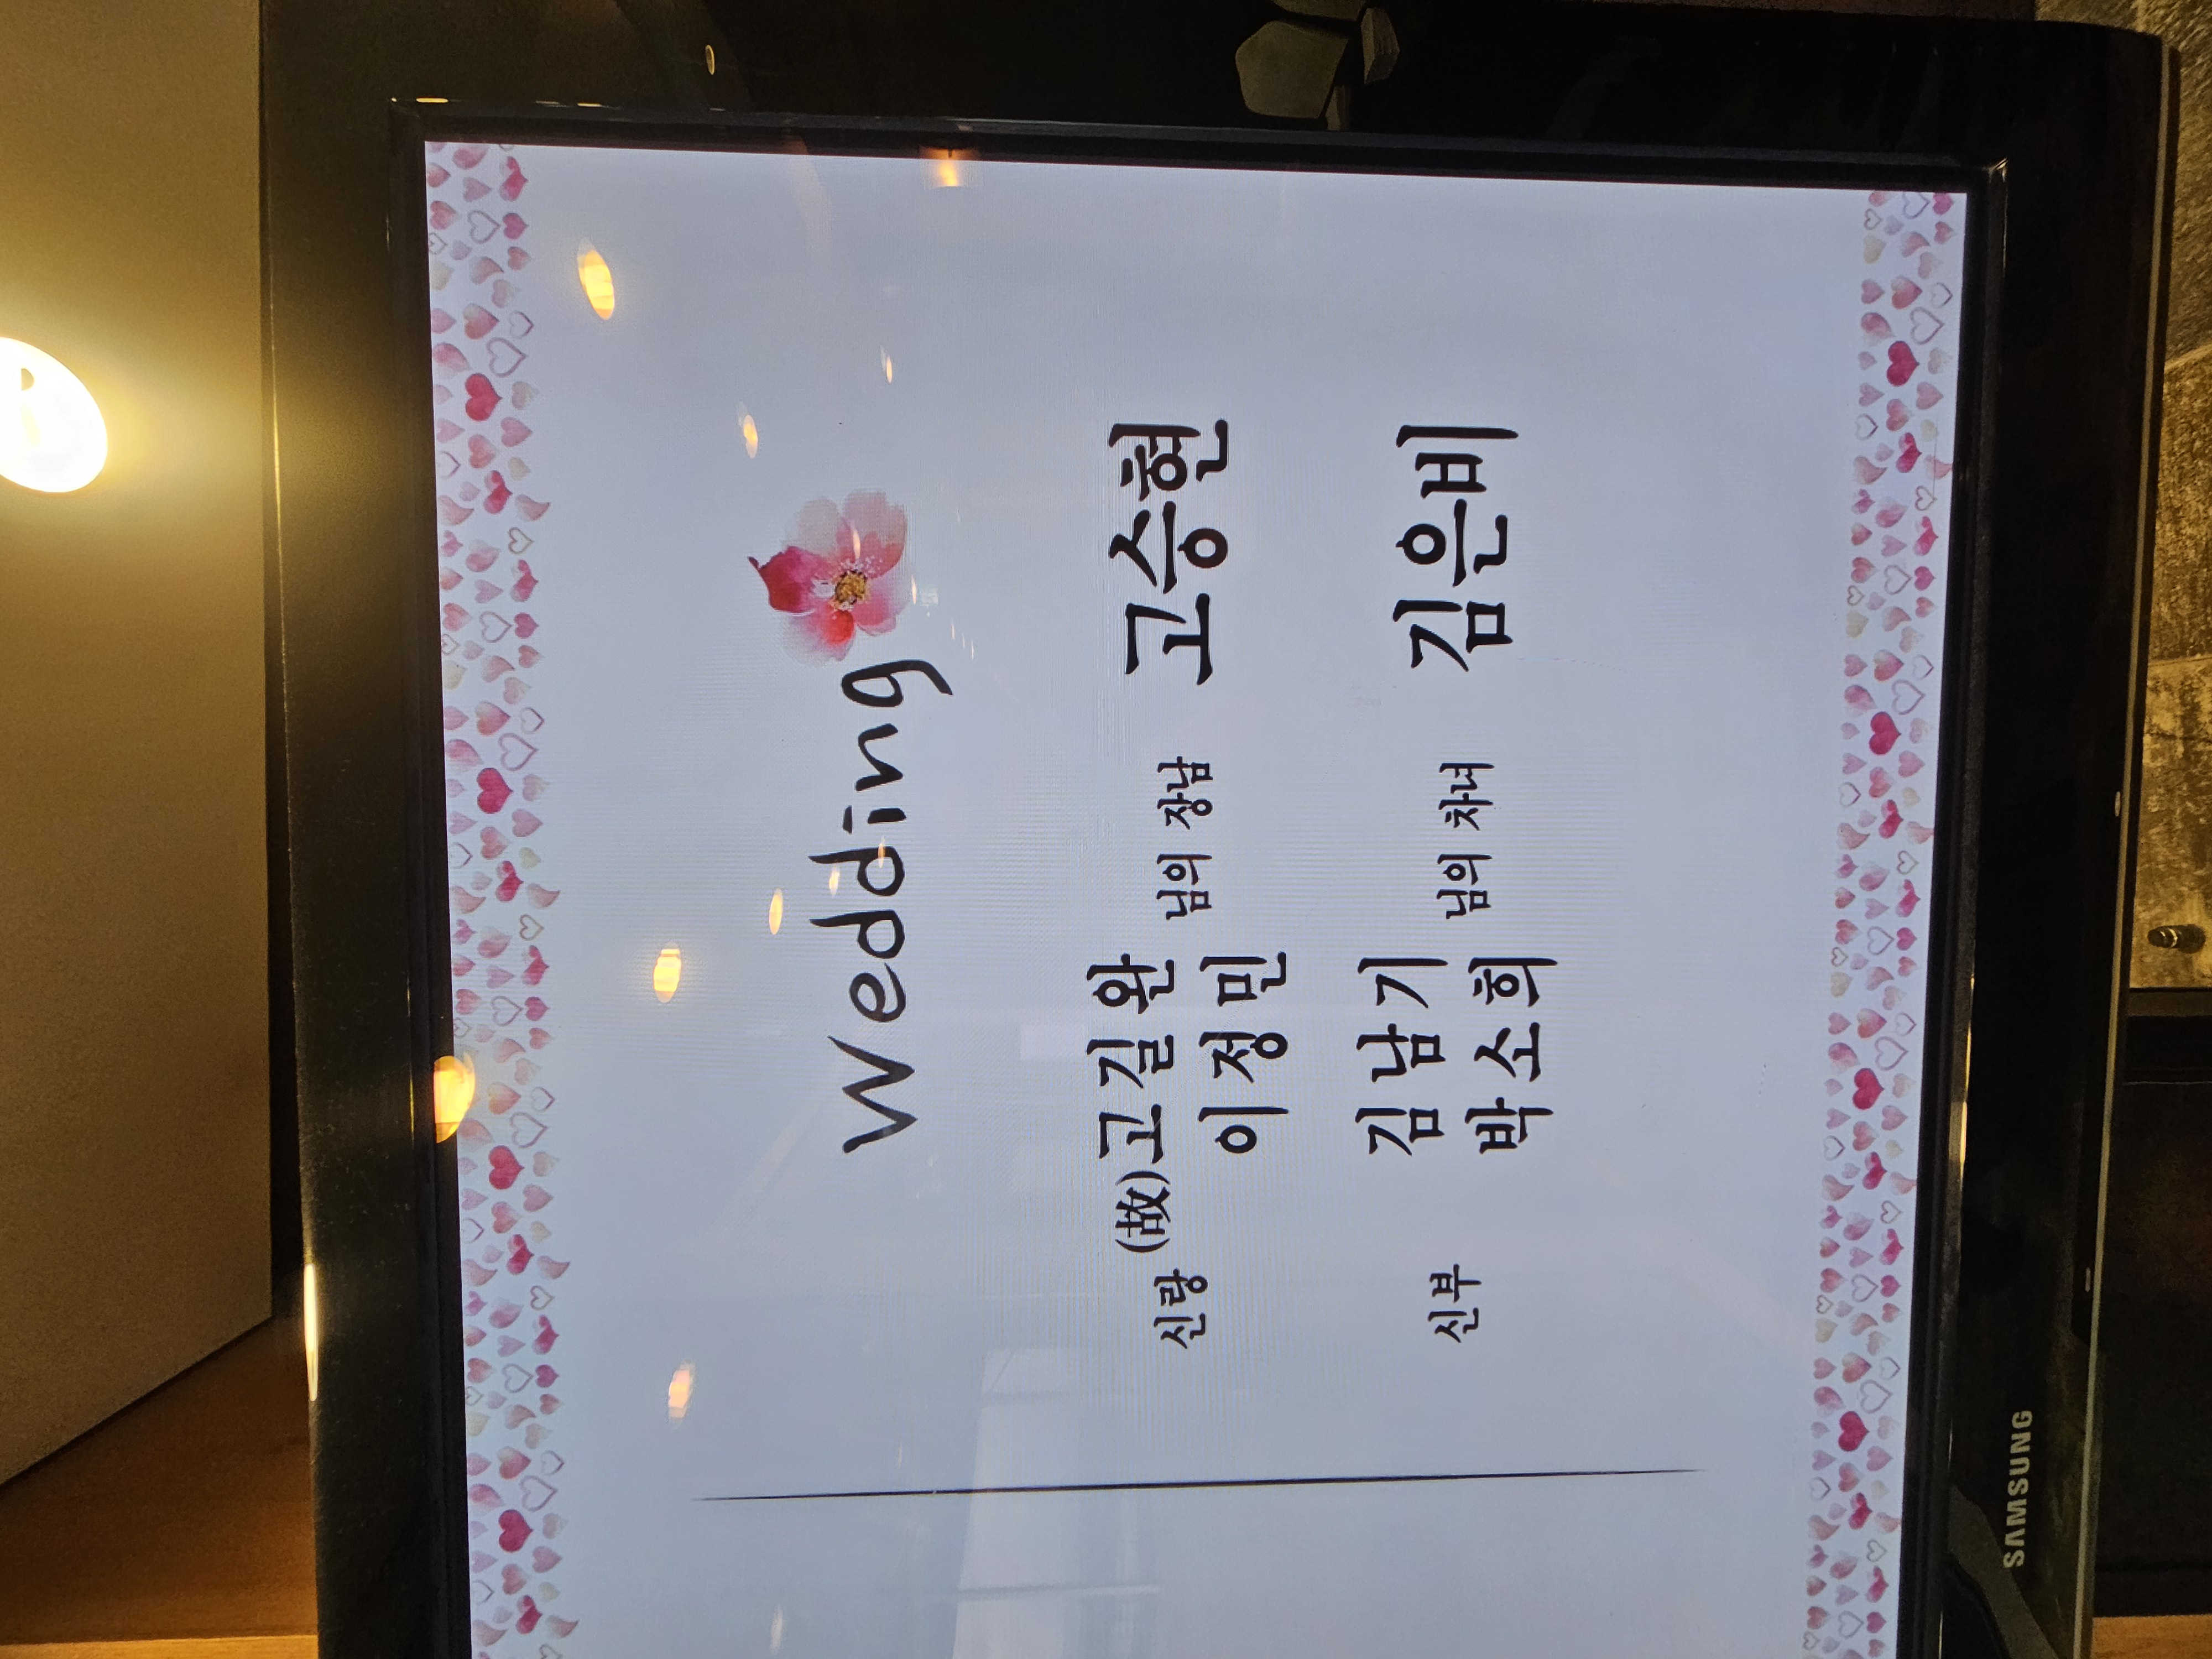 Wedding
신랑 (故)고길환 님의 장남 고승현
이정민
신부 김남기 님의 차녀 김은비
박소희
SAMSUNG